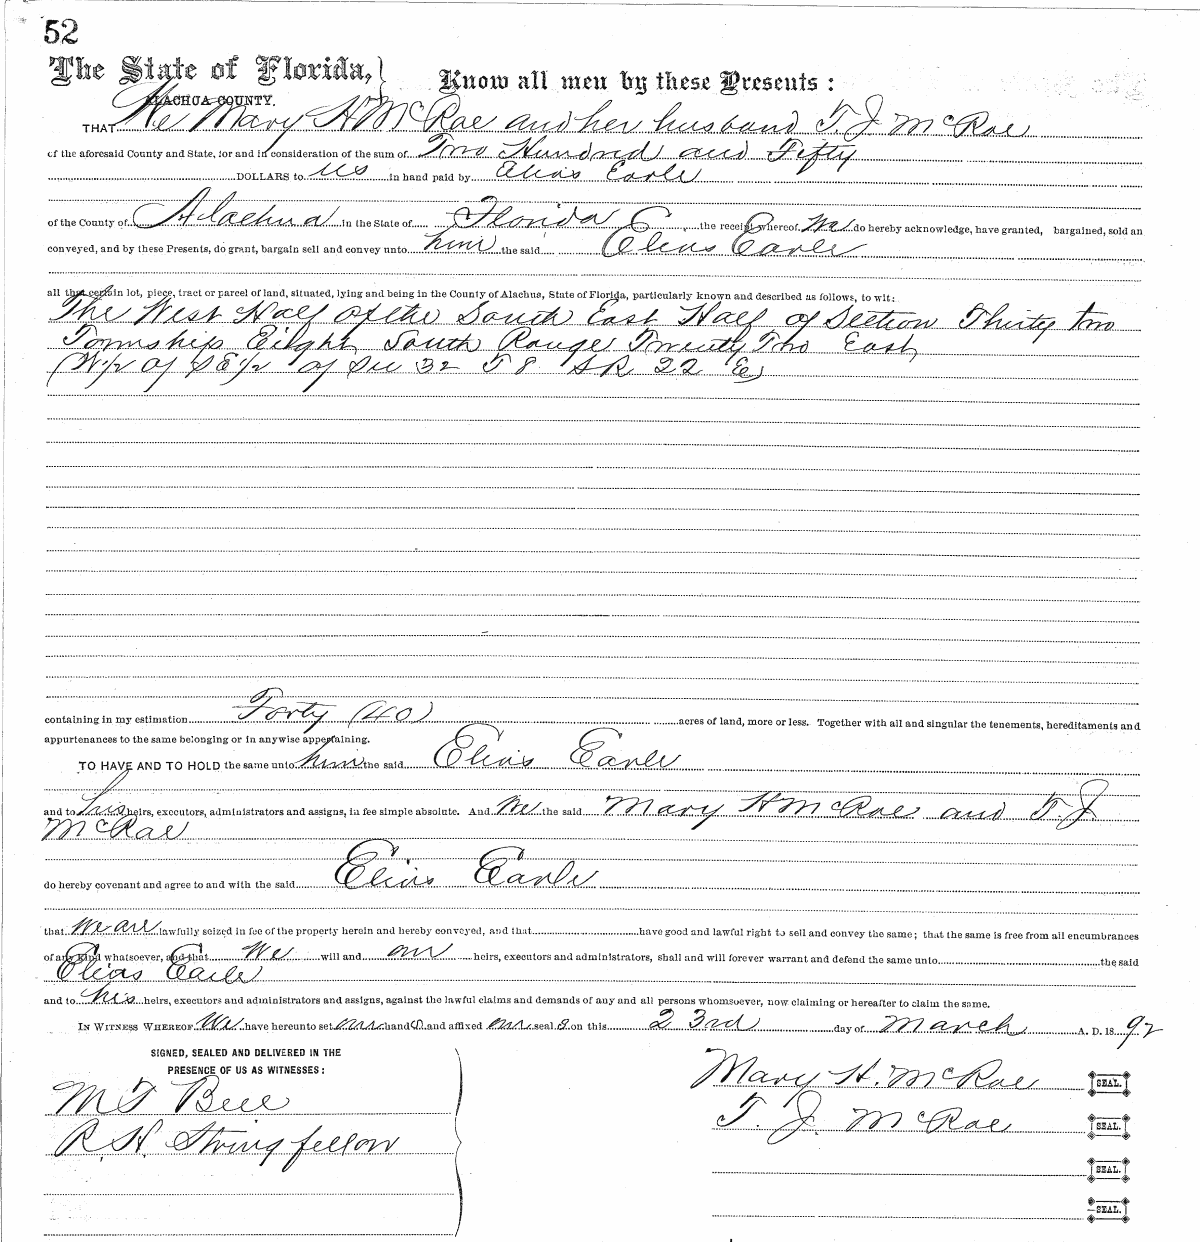 52
The State of Florida, } Know all men by these Presents :
ALACHUA COUNTY.
THAT We Mary H McRae and her husband T. J. McRae
of the aforesaid County and State, for and in consideration of the sum of Two Hundred and Fifty
DOLLARS to us in hand paid by Elias Earle
of the County of Alachua in the State of Florida the receipt whereof We do hereby acknowledge, have granted, bargained, sold an
conveyed, and by these Presents, do grant, bargain sell and convey unto him the said Elias Earle
all that certain lot, piece, tract or parcel of land, situated, lying and being in the County of Alachua, State of Florida, particularly known and described as follows, to wit:
The West Half of the South East Half of Section Thirty two
Township Eight South Range Twenty Two East
(W1/2 of SE1/2 of Sec 32 T 8 S R 22 E)
containing in my estimation Forty (40) acres of land, more or less. Together with all and singular the tenements, hereditaments and
appurtenances to the same belonging or in anywise appertaining.
TO HAVE AND TO HOLD the same unto him the said Elias Earle
and to his heirs, executors, administrators and assigns, in fee simple absolute. And We the said Mary H McRae and T. J.
McRae
do hereby covenant and agree to and with the said Elias Earle
that we are lawfully seized in fee of the property herein and hereby conveyed, and that have good and lawful right to sell and convey the same; that the same is free from all encumbrances
of any kind whatsoever, and that We will and our heirs, executors and administrators, shall and will forever warrant and defend the same unto the said
Elias Earle
and to his heirs, executors and administrators and assigns, against the lawful claims and demands of any and all persons whomsoever, now claiming or hereafter to claim the same.
IN WITNESS WHEREOF We have hereunto set our hands and affixed our seal s on this 23rd day of March A. D. 18 92
SIGNED, SEALED AND DELIVERED IN THE
PRESENCE OF US AS WITNESSES:
Mary H. McRae SEAL.
M T Bell
T. J. McRae SEAL.
R. H. Stringfellow
SEAL.
SEAL.